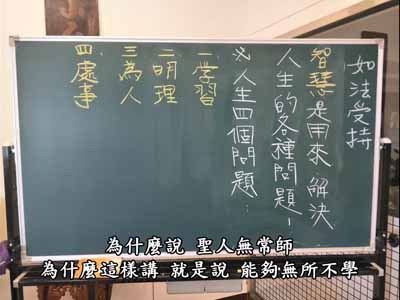 如法受持
智慧是用來解決
人生的各種問題!
※人生四個問題:
一學習
二明理
三為人
四處事
為什麼說 聖人無常師
為什麼這樣講 就是說 能夠無所不學